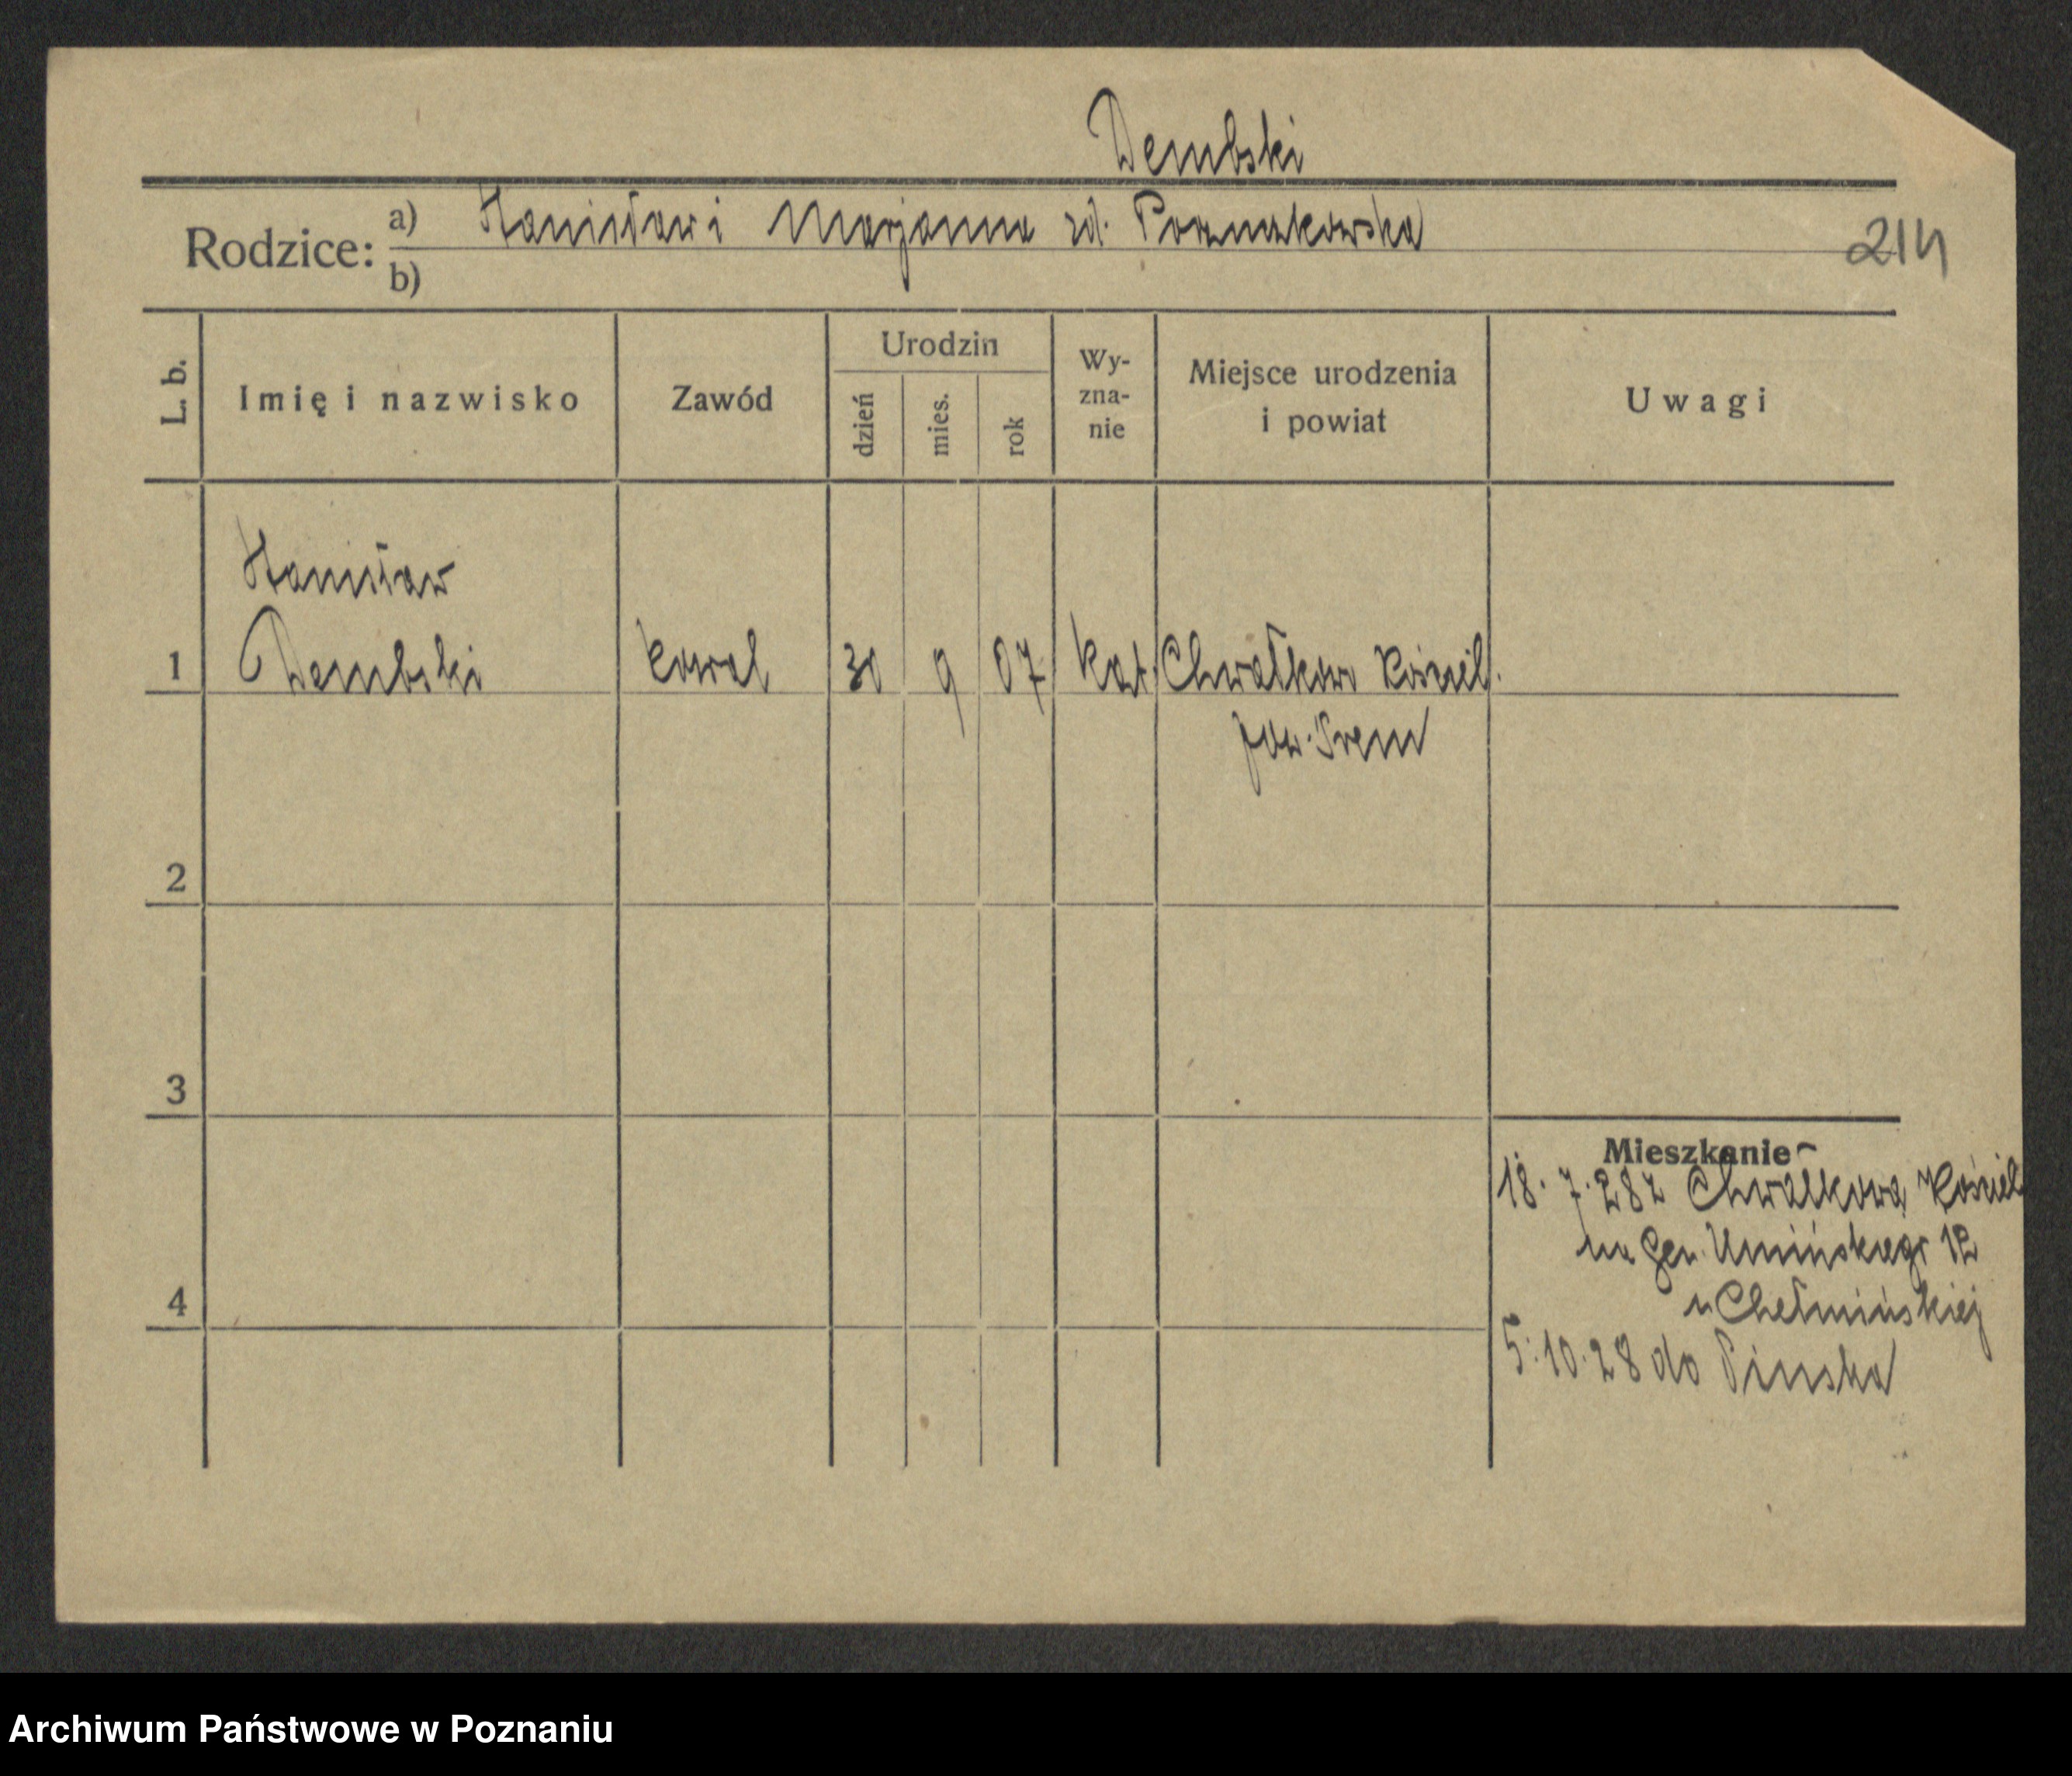 Dembski
Rodzice: a) Stanisław i Marjanna zd.
b)
214
L. b. Imię i nazwisko Zawód Urodzin dzień mies. rok Wy-zna-nie Miejsce urodzenia i powiat Uwagi
Stanisław
1 Dembski kowal 30 9 07 kat. Chwałkowo Kościel.
pow. Śrem
2
3
Mieszkanie
18. 7. 28 z Chwałkowa Kościel
na Gen. Umińskiego 12
u Chełmińskiej
4
5. 10. 28 do Pinska
Archiwum Państwowe w Poznaniu